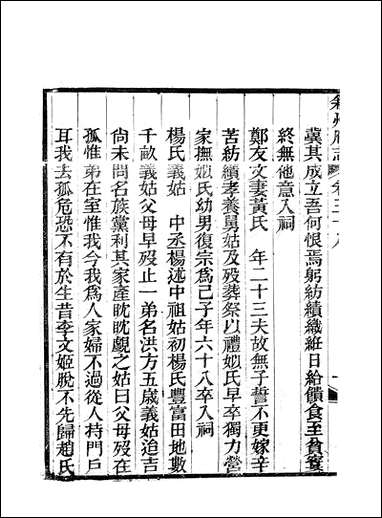 叙州府志 卷三十八
冀其成立吾何恨焉躬紡績織紝日給饋食至貧窶
終無他意入祠
鄭友文妻黃氏 年二十三夫故無子誓不更嫁辛
苦紡績孝養舅姑及歿葬祭以禮娰氏早卒獨力營
家撫娰氏幼男復宗為己子年六十八卒入祠
楊氏義姑 中丞楊述中祖姑初楊氏豐富田地數
千畝義姑父母早歿止一弟名洪方五歲義姑迨吉
尚未問名族黨利其家產眈眈覷之姑曰父母歿在
孤惟弟在室惟我今我為人家婦不過從人持門戶
耳我去孤危恐不有於生昔李文姬脫不先歸趙氏